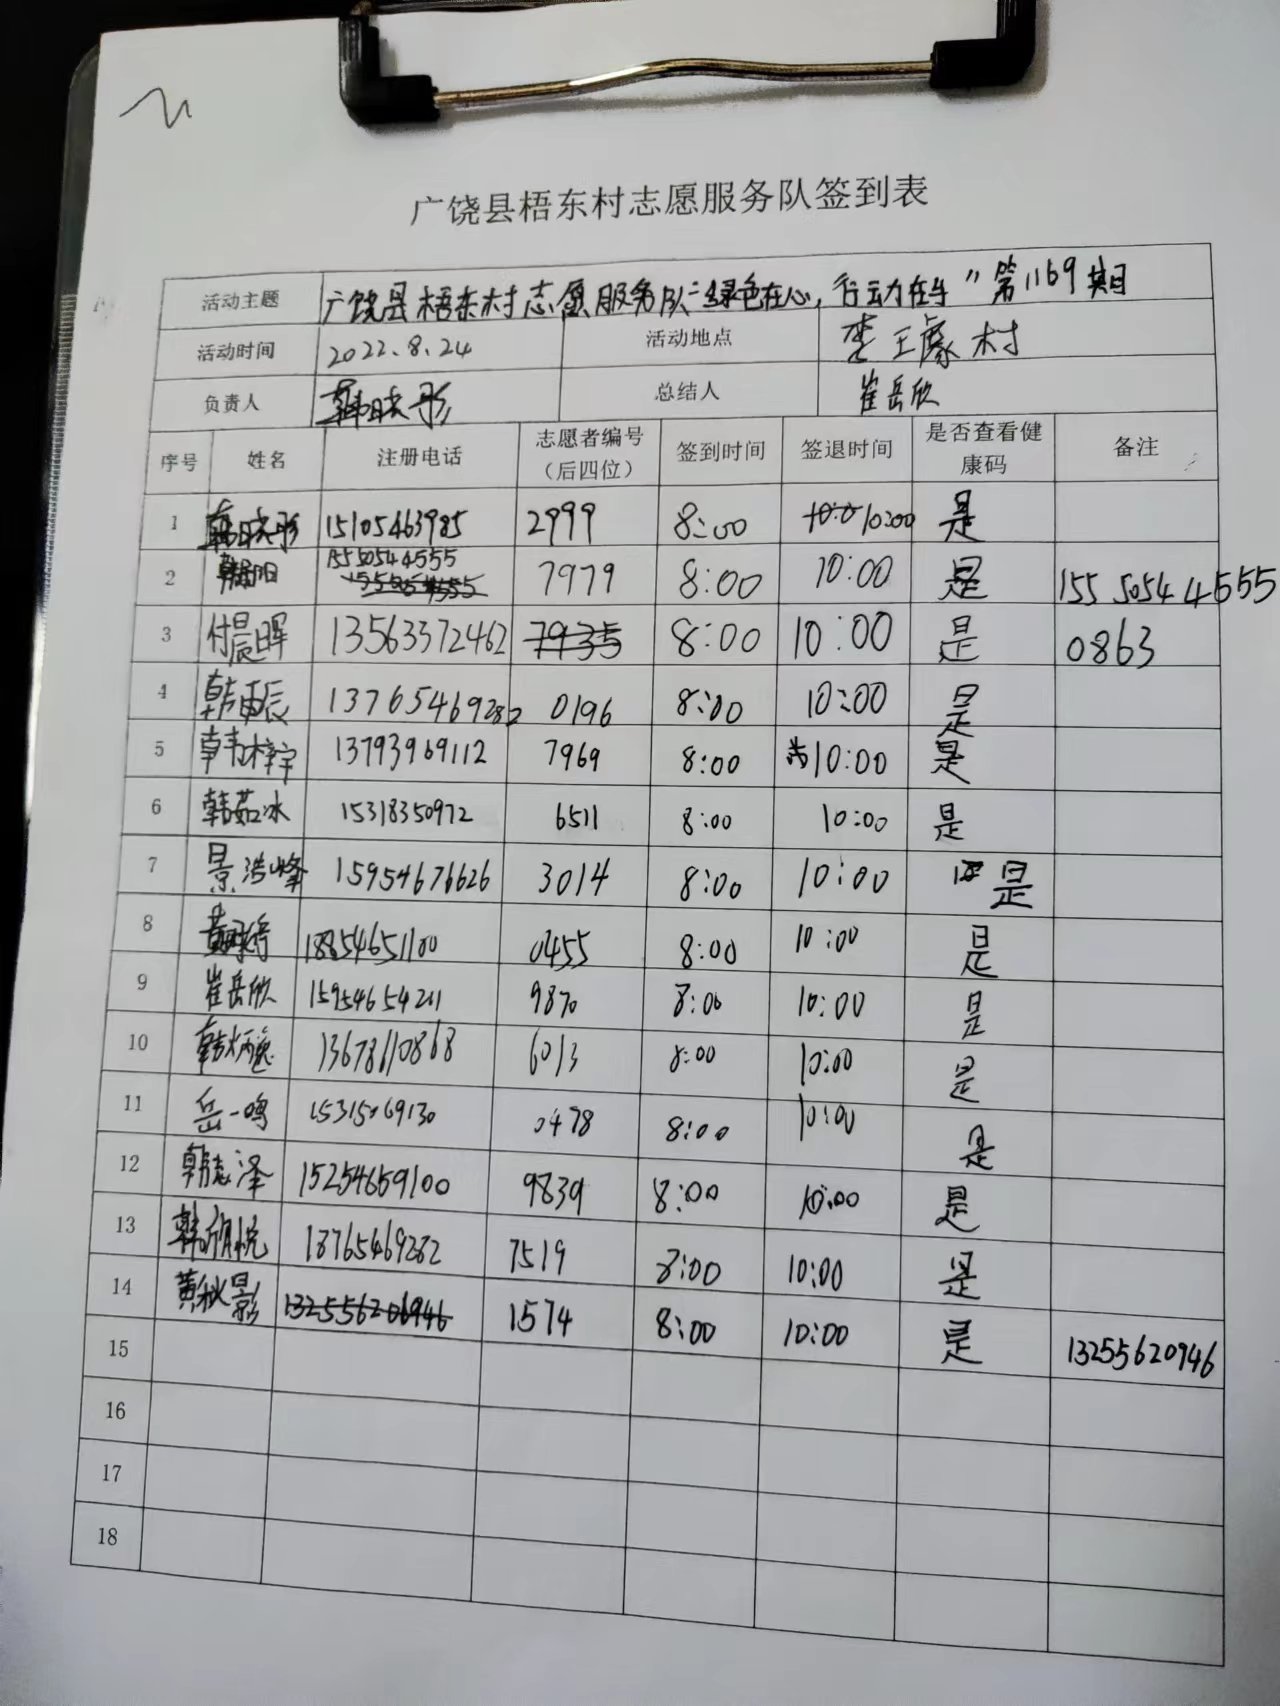 广饶县梧东村志愿服务队签到表
活动主题 广饶县梧东村志愿服务队“绿色在心,行动在手”第1169期
活动时间 2022.8.24 活动地点 李王 村
负责人 韩晓彤 总结人 崔岳欣
序号 姓名 注册电话 志愿者编号(后四位) 签到时间 签退时间 是否查看健康码 备注
1 韩晓彤 15105463985 2999 8:00 10:00 是
2 15505444555 7979 8:00 10:00 是 15550544555
3 付晨晖 13563372462 7935 8:00 10:00 是 0863
4 韩雨辰 13765469282 0196 8:00 10:00 是
5 韩梓宇 13793969112 7969 8:00 10:00 是
6 韩茹冰 15318350972 6511 8:00 10:00 是
7 景浩峰 15954676626 3014 8:00 10:00 是
8 18854651100 0455 8:00 10:00 是
9 崔岳欣 15954654211 9870 8:00 10:00 是
10 韩炳逸 13678610868 6013 8:00 10:00 是
11 岳一鸣 15315069130 0478 8:00 10:00 是
12 韩志泽 15254659100 9839 8:00 10:00 是
13 韩欣悦 18765469282 7519 8:00 10:00 是
14 黄秋影 1574 8:00 10:00 是 13255620946
15
16
17
18